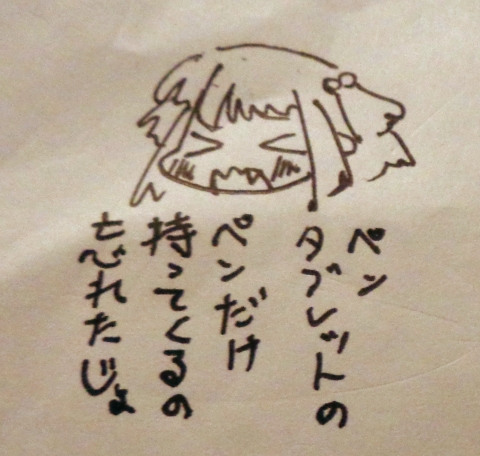 ペン
タブレットの
ペンだけ
持ってくるの
忘れたじょ